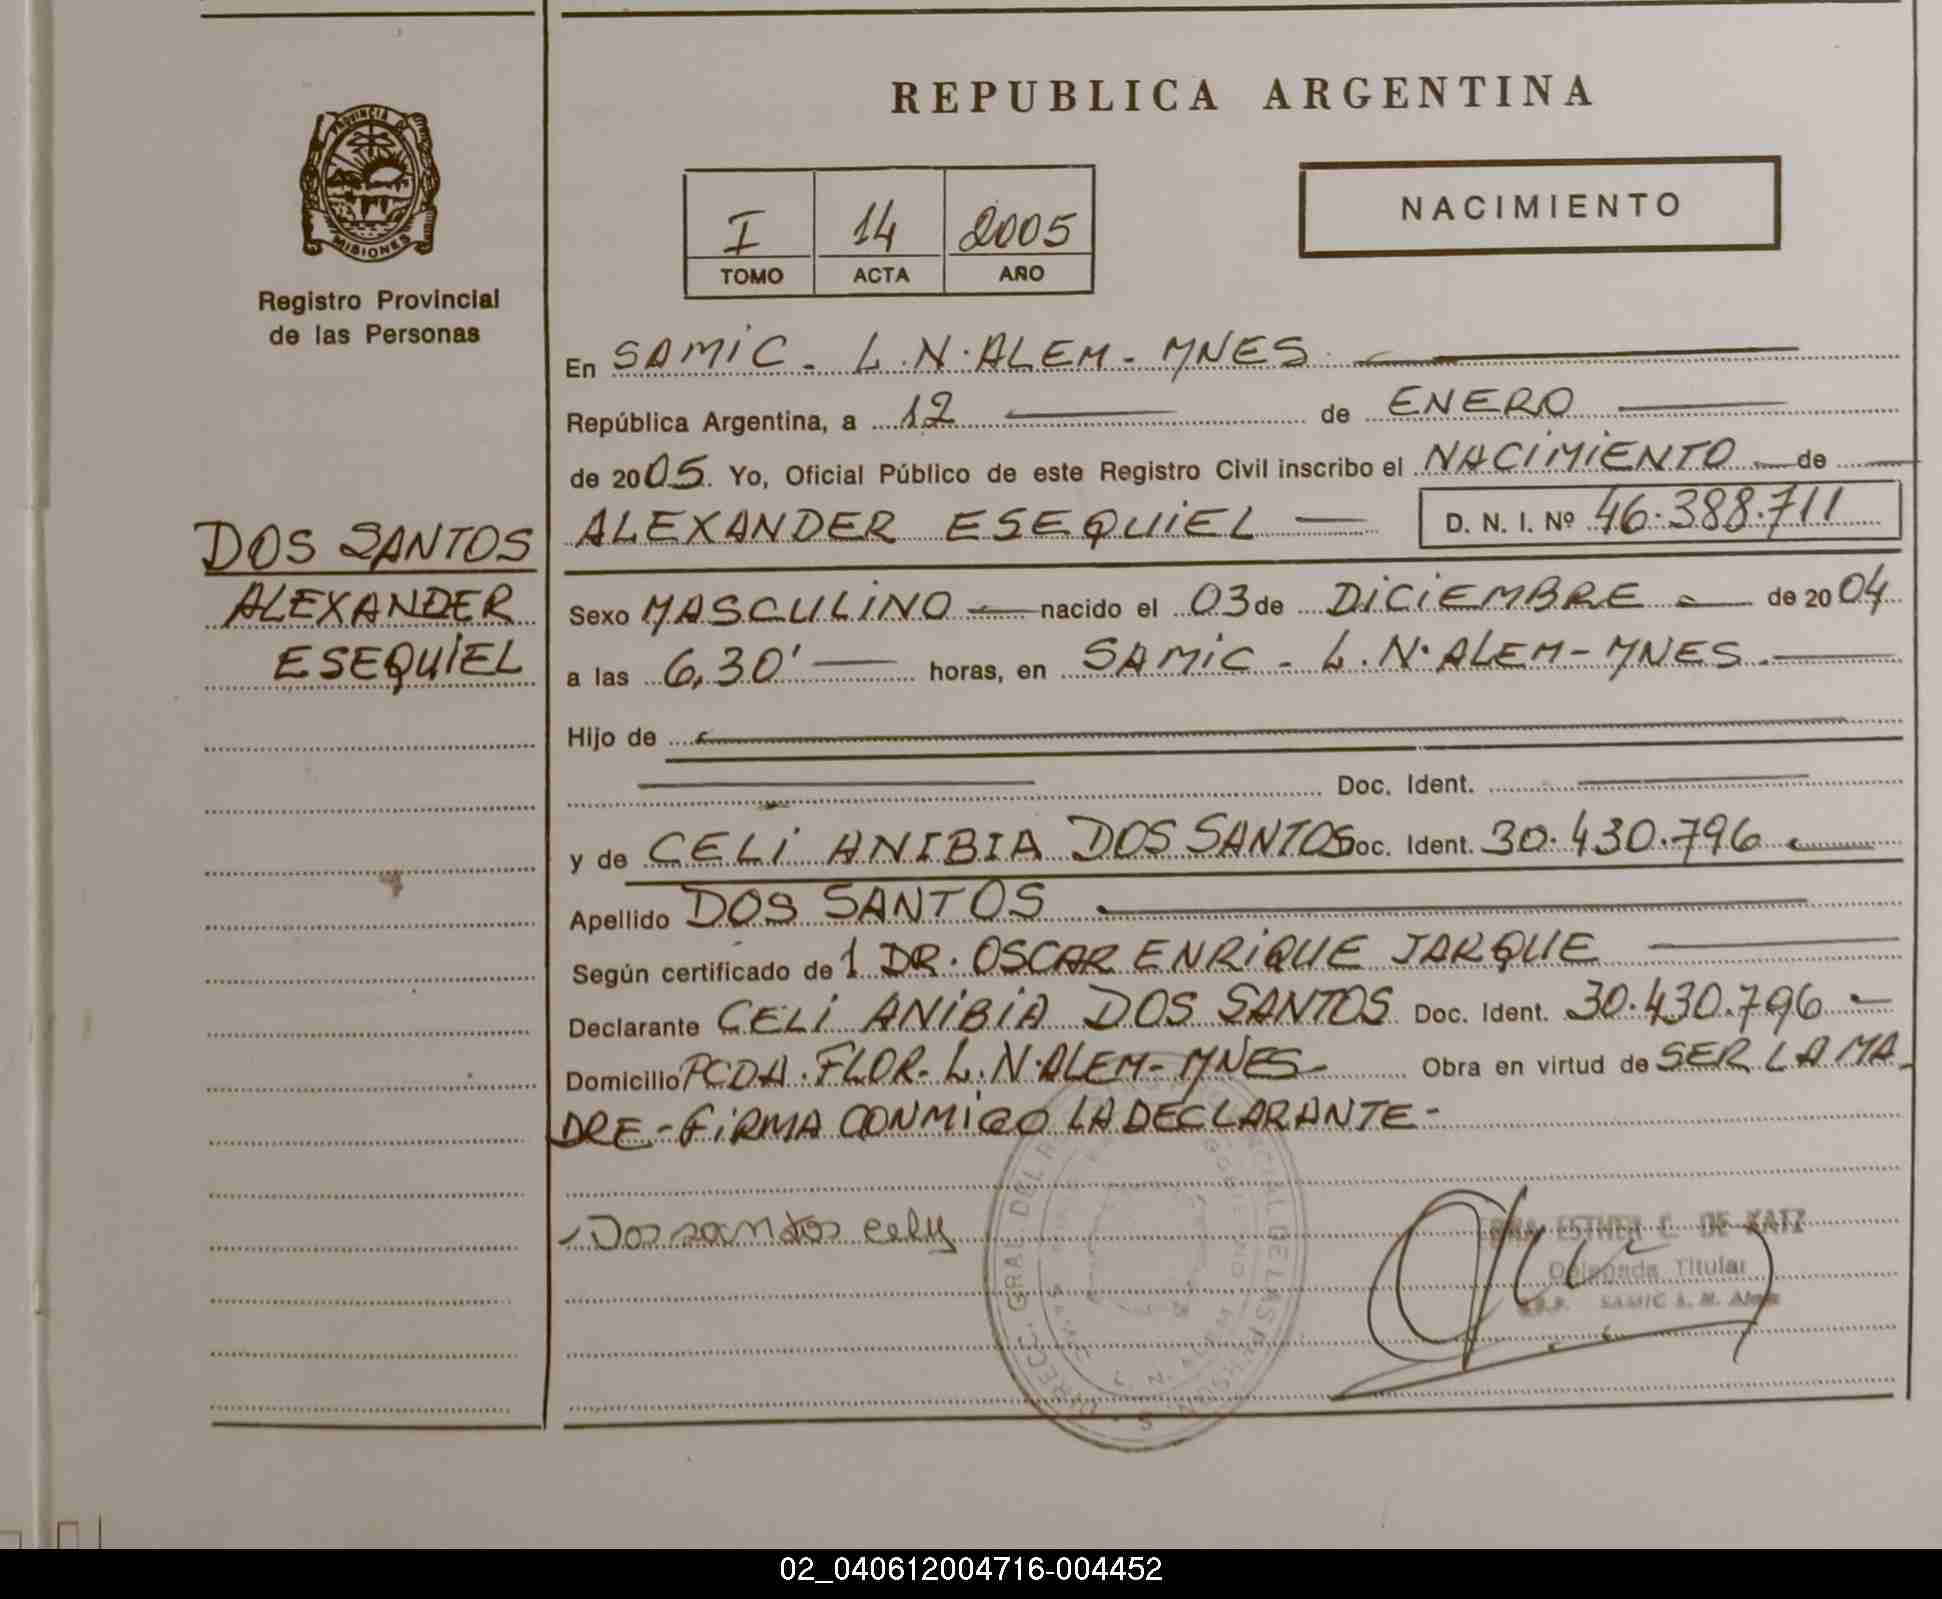 REPUBLICA ARGENTINA
PROVINCIA DE
MISIONES
Registro Provincial
de las Personas
NACIMIENTO
I 14 2005
TOMO ACTA AÑO
En SAMIC - L.N.ALEM - MNES
República Argentina, a 12 de ENERO
de 2005. Yo, Oficial Público de este Registro Civil inscribo el NACIMIENTO de
DOS SANTOS
ALEXANDER
ESEQUIEL
ALEXANDER ESEQUIEL D. N. I. Nº 46.388.711
Sexo MASCULINO nacido el 03 de DICIEMBRE de 2004
a las 6,30' horas, en SAMIC - L.N.ALEM - MNES.
Hijo de
Doc. Ident.
y de CELI ANIBIA DOS SANTOS Doc. Ident. 30.430.796
Apellido DOS SANTOS
Según certificado de 1 DR. OSCAR ENRIQUE JARQUE
Declarante CELI ANIBIA DOS SANTOS Doc. Ident. 30.430.796
Domicilio PCDA. FLOR. L.N.ALEM - MNES Obra en virtud de SER LA MA
DRE - FIRMA CONMIGO LA DECLARANTE -
Dos santos cely
ESTHER C. DE KATZ
Delegada Titular
SAMIC L. N. Alem
02_040612004716-004452